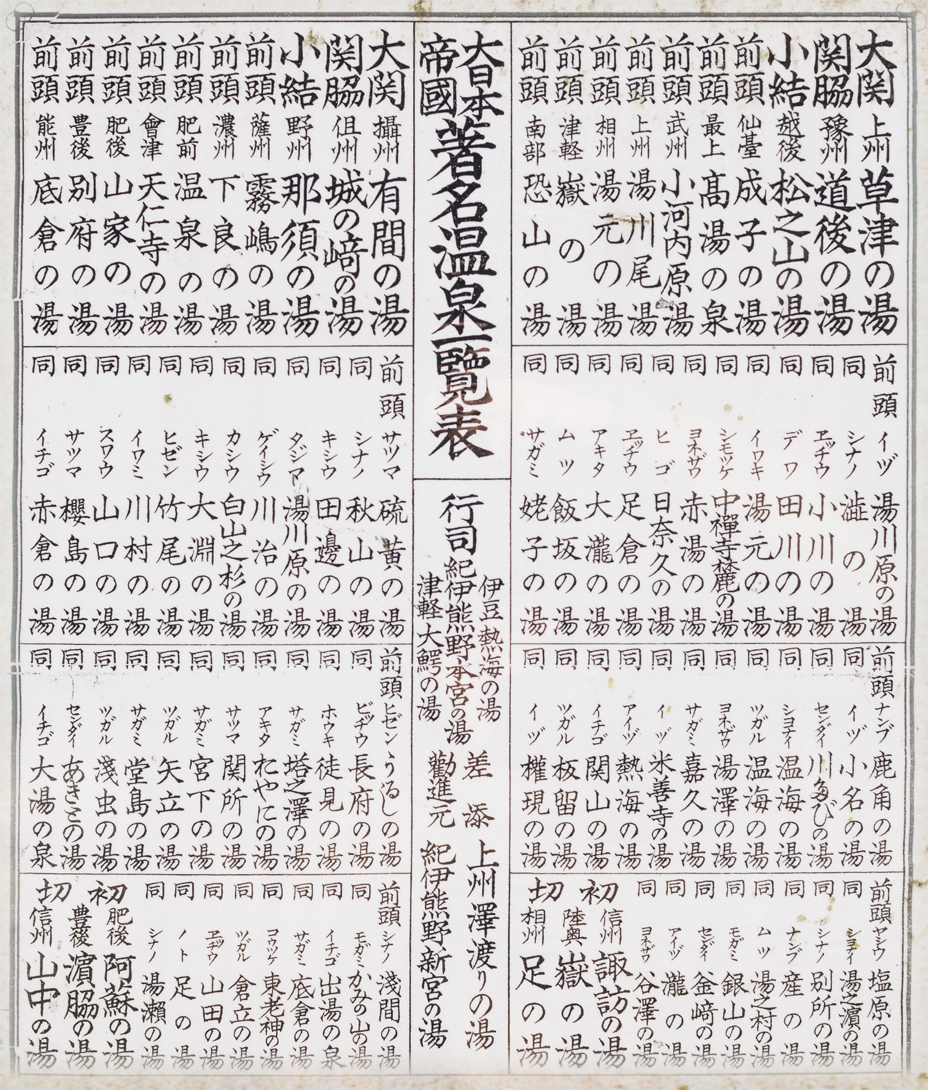 大日本
帝國
著名温泉一覽表
行司
伊豆熱海の湯
紀伊熊野本宮の湯
津軽大鰐の湯
差添
上州澤渡りの湯
勸進元
紀伊熊野新宮の湯
大関 上州 草津の湯
関脇 豫州 道後の湯
小結 越後 松之山の湯
前頭 仙臺 成子の湯
前頭 最上 髙湯の泉
前頭 武州 小河内原の湯
前頭 上州 湯川尾の湯
前頭 相州 湯元の湯
前頭 津軽 嶽の湯
前頭 南部 恐山の湯
大関 攝州 有間の湯
関脇 但州 城の﨑の湯
小結 野州 那須の湯
前頭 薩州 霧嶋の湯
前頭 濃州 下良の湯
前頭 肥前 温泉の湯
前頭 會津 天仁寺の湯
前頭 肥後 山家の湯
前頭 豊後 別府の湯
前頭 能州 底倉の湯
前頭 イヅ 湯川原の湯
同 シナノ 澁の湯
同 ヱッチウ 小川の湯
同 デワ 田川の湯
同 イワキ 湯元の湯
同 シモツケ 中禪寺麓の湯
同 ヨネザワ 赤湯の湯
同 ヒゴ 日奈久の湯
同 ヱッチウ 足倉の湯
同 アキタ 大瀧の湯
同 ムツ 飯坂の湯
同 サガミ 姥子の湯
前頭 サツマ 硫黄の湯
同 シナノ 秋山の湯
同 キシウ 田邊の湯
同 タジマ 湯川原の湯
同 ゲイシウ 川治の湯
同 カシウ 白山之杉の湯
同 キシウ 大淵の湯
同 ヒゼン 竹尾の湯
同 イワミ 川村の湯
同 スワウ 山口の湯
同 サツマ 櫻島の湯
同 イチゴ 赤倉の湯
前頭 ナンブ 鹿角の湯
同 イヅ 小名の湯
同 センダイ 川たびの湯
同 シヨナイ 温海の湯
同 ツガル 温海の湯
同 ヨネザワ 湯澤の湯
同 サガミ 嘉久の湯
同 イヅ 米善寺の湯
同 アイヅ 熱海の湯
同 イチゴ 関山の湯
同 ツガル 板留の湯
同 イヅ 權現の湯
前頭 ヒゼン うるしの湯
同 ビッチウ 長府の湯
同 ホウキ 徒見の湯
同 サガミ 塔之澤の湯
同 アキタ たやにの湯
同 サツマ 関所の湯
同 サガミ 宮下の湯
同 ツガル 矢立の湯
同 サガミ 堂島の湯
同 ツガル 淺虫の湯
同 センダイ あきとの湯
同 イチゴ 大湯の泉
前頭 ヤシウ 塩原の湯
同 シヨナイ 湯之濱の湯
同 シナノ 別所の湯
同 ナンブ 産の湯
同 ムツ 湯之村の湯
同 モガミ 銀山の湯
同 センダイ 釜﨑の湯
同 アイヅ 瀧の湯
同 ヨネザワ 谷澤の湯
初 信州 諏訪の湯
陸奥 嶽の湯
切 相州 足の湯
前頭 シナノ 淺間の湯
同 モガミ かみの山の湯
同 イチゴ 出湯の泉
同 サガミ 底倉の湯
同 コウツケ 東老神の湯
同 ツガル 倉立の湯
同 ヱヂウ 山田の湯
同 ノト 足の湯
同 シナノ 湯瀬の湯
初 肥後 阿蘇の湯
豊後 濱脇の湯
切 信州 山中の湯